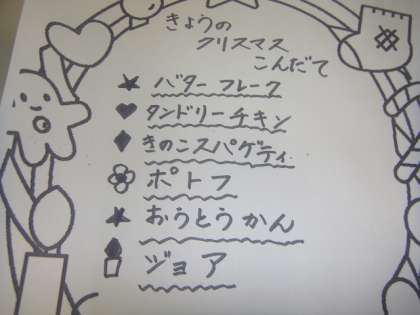 きょうの
クリスマス
こんだて
バターフレーク
タンドリーチキン
きのこスパゲティ
ポトフ
おうとうかん
ジョア